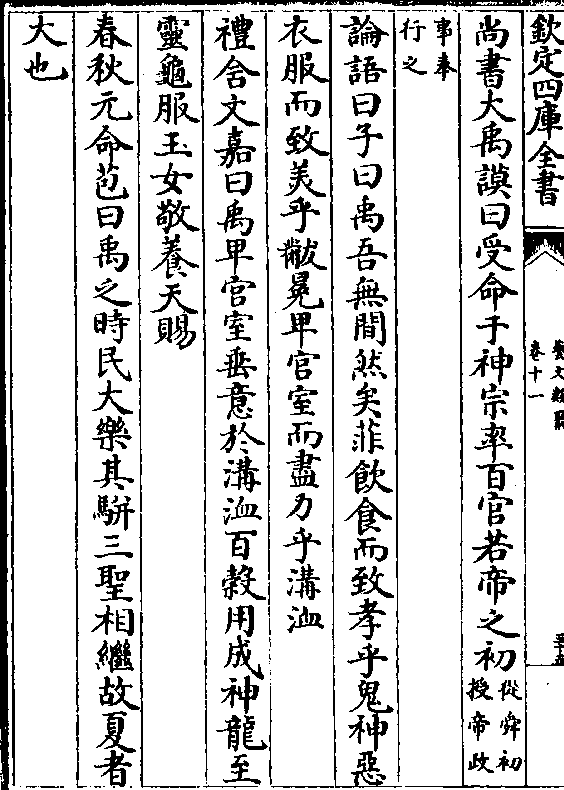 欽定四庫全書
藝文類聚
卷十一
尚書大禹謨曰受命于神宗率百官若帝之初從舜初授帝政
事奉行之
論語曰子曰禹吾無間然矣菲飲食而致孝乎鬼神惡
衣服而致美乎黻冕卑宫室而盡力乎溝洫
禮含文嘉曰禹卑宫室垂意於溝洫百榖用成神龍至
靈龜服玉女敬養天賜
春秋元命苞曰禹之時民大樂其駢三聖相繼故夏者
大也